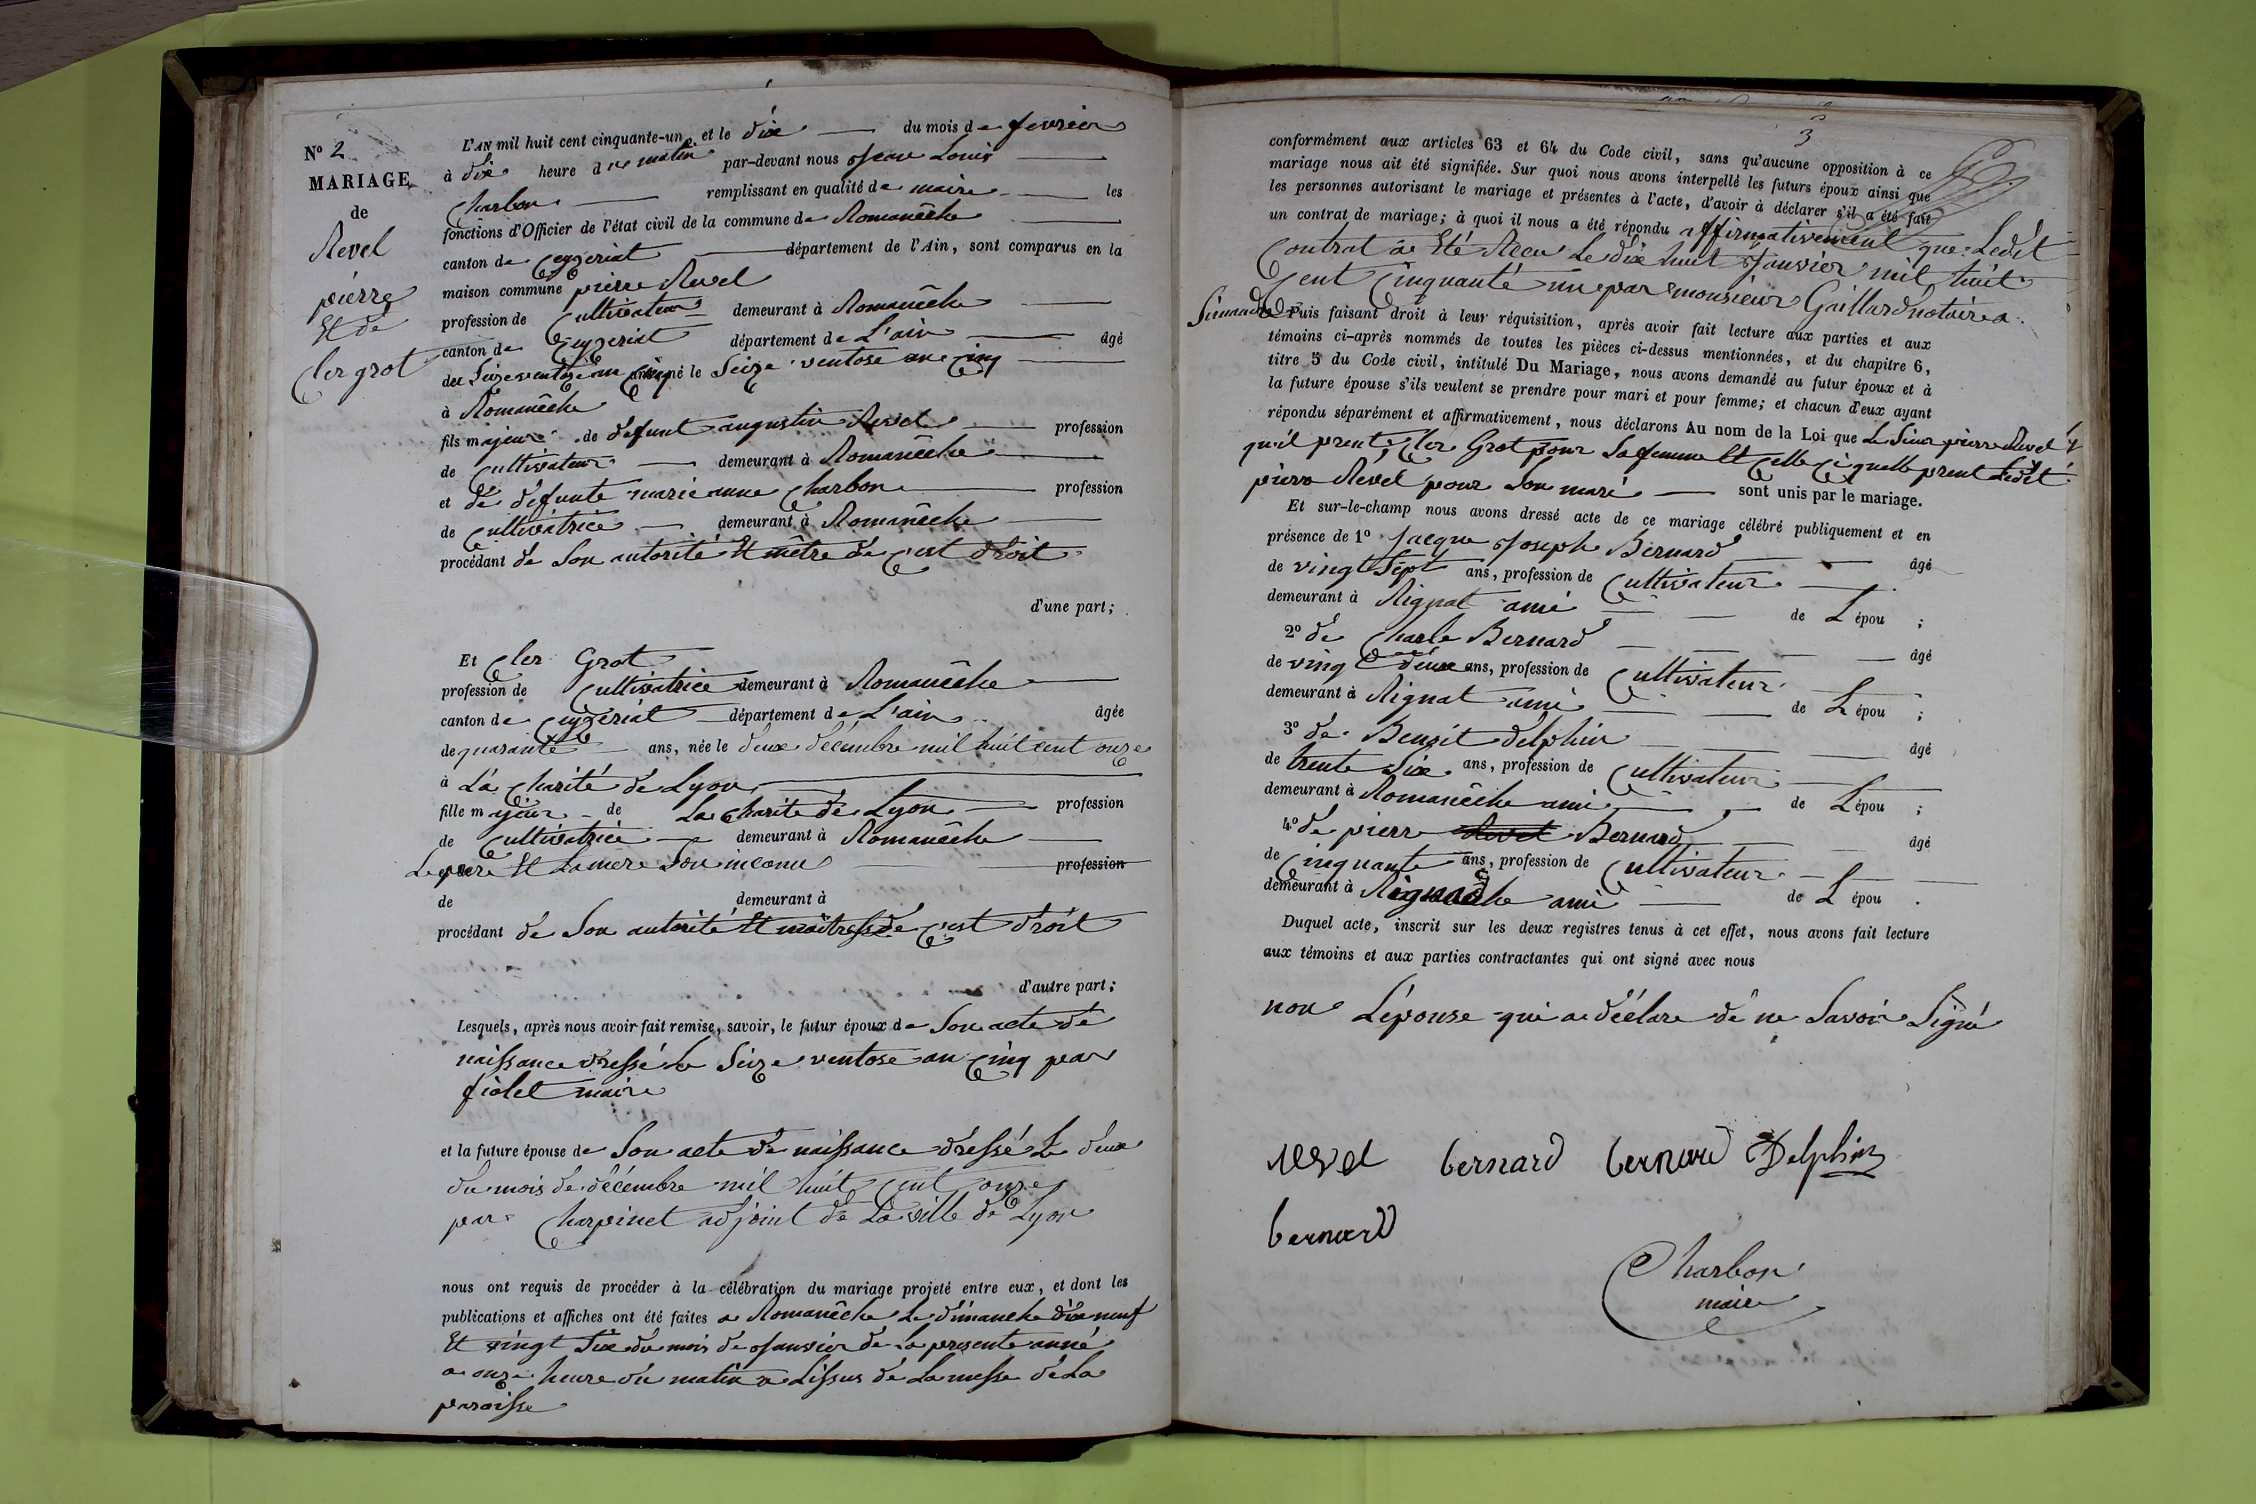 N° 2
MARIAGE
de
Revel
pierre
Et de
Cler grot
L'AN mil huit cent cinquante-un et le dix du mois de fevrier
à dix heure du matin par-devant nous Jean Louis
Charbon remplissant en qualité de maire les
fonctions d'Officier de l'état civil de la commune de Romanêche
canton de Ceyzeriat département de l'Ain, sont comparus en la
maison commune pierre Revel
profession de Cultivateur demeurant à Romanêche
canton de Ceyzeriat département de L'ain âgé
du Seize ventose an Cinq né le Seize ventose an Cinq
à Romanêche
fils majeur de defunt augustin Revel profession
de Cultivateur demeurant à Romanêche
et de défunte marie anne Charbon profession
de Cultivatrice demeurant à Romanêche
procédant de Son autorité Et mêtre de Cest droit
d'une part;
Et Cler Grot
profession de Cultivatrice demeurant à Romanêche
canton de Ceyzeriat département de L'ain âgée
de quarante ans, née le deux décembre mil huit cent onze
à La Charité de Lyon
fille majeur de La Charite de Lyon profession
de Cultivatrice demeurant à Romanêche
Le pere Et La mere Son inconu profession
de demeurant à
procédant de Son autorité Et maîtresse de Cest droit
d'autre part;
Lesquels, après nous avoir fait remise, savoir, le futur époux de Son acte de
naissance dressé Le Seize ventose an Cinq par
fiolet maire
et la future épouse de Son acte de naissance dressé Le deux
du mois de décembre mil huit Cent onze
par Charpinet adjoint de La ville de Lyon
nous ont requis de procéder à la célébration du mariage projeté entre eux, et dont les
publications et affiches ont été faites a Romanêche Le dimanche dix neuf
Et vingt Six du mois de Janvier de La presente anné
a onze heure du matin a Lissus de La messe de La
paroisse
3
conformément aux articles 63 et 64 du Code civil, sans qu'aucune opposition à ce
mariage nous ait été signifiée. Sur quoi nous avons interpellé les futurs époux ainsi que
les personnes autorisant le mariage et présentes à l'acte, d'avoir à déclarer s'il a été fait
un contrat de mariage; à quoi il nous a été répondu affirmativement que Ledit
Contrat a Eté Recu Le dix huit Janvier mil huit
Cent Cinquante un par monsieur Gaillard notaire a
Simandre Puis faisant droit à leur réquisition, après avoir fait lecture aux parties et aux
témoins ci-après nommés de toutes les pièces ci-dessus mentionnées, et du chapitre 6,
titre 5 du Code civil, intitulé Du Mariage, nous avons demandé au futur époux et à
la future épouse s'ils veulent se prendre pour mari et pour femme; et chacun d'eux ayant
répondu séparément et affirmativement, nous déclarons Au nom de la Loi que Le Sieur pierre Revel
qu'il prent Cler Grot pour Sa femme Et Celle Ci quelle prent Ledit
pierre Revel pour Son mari sont unis par le mariage.
Et sur-le-champ nous avons dressé acte de ce mariage célébré publiquement et en
présence de 1° Jacque Joseph Bernard âgé
de vingt Sept ans, profession de Cultivateur
demeurant à Rignat ami de L'épou ;
2° de Charle Bernard âgé
de vingt deux ans, profession de Cultivateur
demeurant à Rignat ami de L'épou ;
3° de Benoit delphin âgé
de trente Six ans, profession de Cultivateur
demeurant à Romanêche ami de L'épou ;
4° de pierre Revel Bernard âgé
de Cinquante ans, profession de Cultivateur
demeurant à ami de L'épou .
Duquel acte, inscrit sur les deux registres tenus à cet effet, nous avons fait lecture
aux témoins et aux parties contractantes qui ont signé avec nous
non L'épouse qui a déclare de ne Savoir Signé
revel bernard bernard Delphin
bernard
Charbon
maire